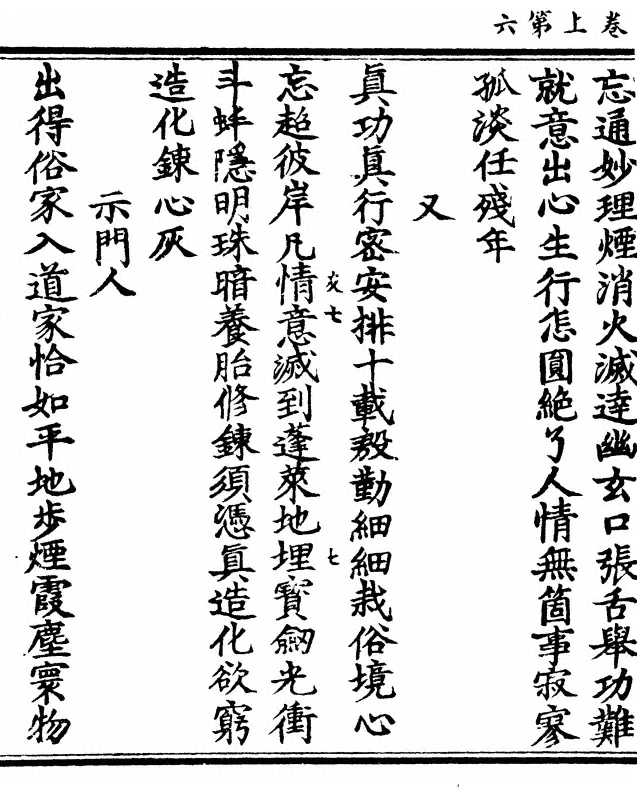 卷上第六
忘通妙理煙消火滅達幽玄口張舌舉功難
就意出心生行怎圓絶了人情無箇事寂寥
孤淡任殘年
又
眞功眞行密安排十載殷勤細細栽俗境心
七
七
忘超彼岸凡情意滅到蓬萊地埋寶劒光衝
斗蚌隱明珠暗養胎修鍊須憑眞造化欲窮
造化鍊心灰
示門人
出得俗家入道家恰如平地步煙霞塵寰物